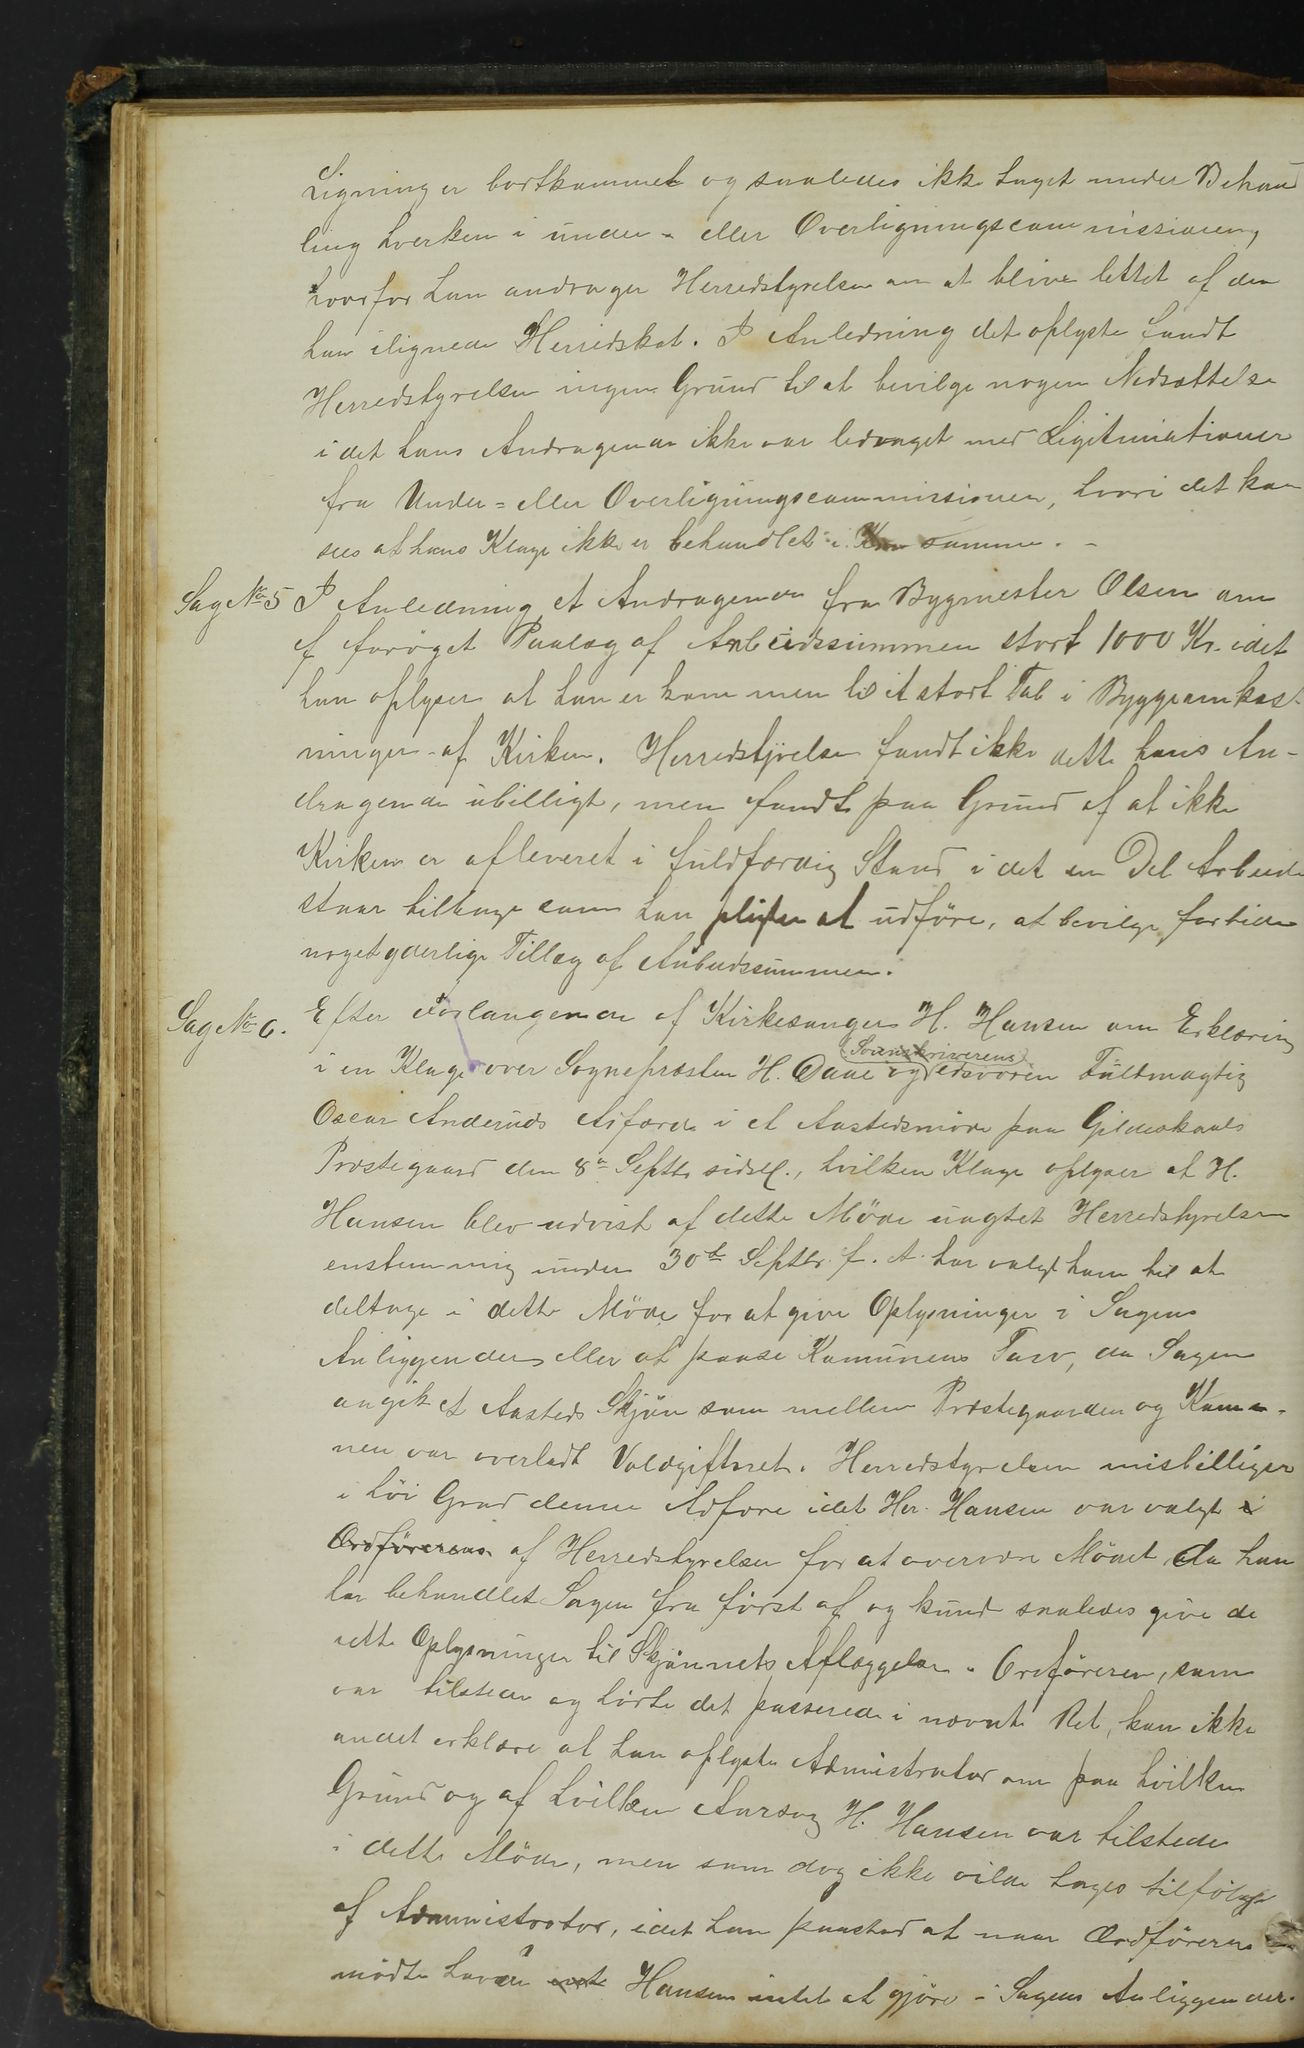 Ligning er bortkommet og saaledes ikke taget under Behand
ling hverken i under- eller Overligningscommissionen,
hvorfor han andrager Herredstyrelsen om at blive lettet af den
ham ilignede Herredskat. I Anledning det oplyste fandt
Herredstyrelsen ingen Grund til at bevilge nogen Nedsættelse
i det hans Andragende ikke var ledsaget med Ligitimationer
fra Under= eller Overligningscommissionen, hvori det kan
sees at hans Klage ikke er behandlet i samme. -
Sag No 5 I Anledning et Andragende fra Bygmester Olsen om
forøget Paalæg af Anbudssummen stort 1000 Kr. idet
han oplyser at han er kommen til et stort Tab i Byggeomkost-
ninger af Kirken. Herredstyrelsen fandt ikke dette hans An-
dragende ubilligt, men fandt paa Grund af at ikke
Kirken er afleveret i fuldfærdig Stand i det en Del Arbeide
staar tilbage som han pligter at udføre, at bevilge for tiden
noget yderlige Tillæg af Anbudssummen.
Sag No 6. Efter Forlangende af Kirkesanger H. Hansen om Erklæring
(Sorenskriverens)
i en Klage over Sognepræsten H. Daae og edsvoren Fuldmægtig
Oscar Anderuds Adfærd i et Aastedsmøde paa Gildeskaals
Præstegaard den 8de Septbr sidstl., hvilken Klage oplyser at H.
Hansen blev udvist af dette Møde uagtet Herredstyrelsen
enstemmig under 30te Septbr. f. A. har valgt ham til at
deltage i dette Møde for at give Oplysninger i Sagens
Anliggender eller at paase Komunens Tarv, da Sagen
angik et Aasteds Skjøn som mellem Præstegaarden og Komu-
nen var overladt Voldgiftsret. Herredstyrelsen misbilliger
i høi Grad denne Adfære idet Her. Hansen var valgt i
Ordførerens af Herredstyrelsen for at overvære Mødet da han
har behandlet Sagen fra først af og kunde saaledes give de
rette Oplysninger til Skjønnets Aflæggelse. Ordføreren, som
var tilstede og hørte det passerede i nævnte Ret, kan ikke
andet erklære at han oplyste Administrator om paa hvilken
Grund og af hvilken Aarsag H. Hansen var tilstede
i dette Møde, men som dog ikke vilde tages tilfølge
af Administrator, idet han paastod at naar Ordføreren
mødte havde Hansen intet at gjøre i Sagens Anliggender.